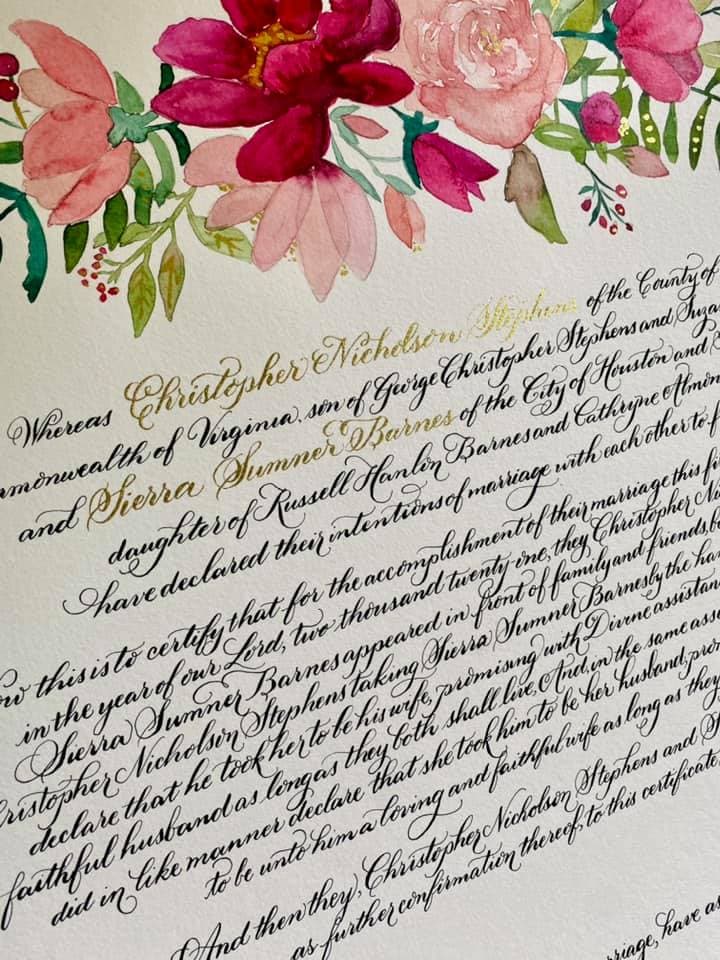 Whereas Christopher Nicholson Stephens of the County of
monwealth of Virginia, son of George Christopher Stephens and
and Sierra Sumner Barnes of the City of Houston and
daughter of Russell Hanlin Barnes and Cathryne
have declared their intentions of marriage with each other to
this is to certify that for the accomplishment of their marriage this
in the year of our Lord, two thousand twenty-one, they Christopher
Sierra Sumner Barnes appeared in front of family and friends
Christopher Nicholson Stephens taking Sierra Sumner Barnes by the
declare that he took her to be his wife, promising with Divine
faithful husband as long as they both shall live, And, in the same
did in like manner declare that she took him to be her husband,
to be unto him a loving and faithful wife as long as they
And then they, Christopher Nicholson Stephens and
as further confirmation thereof, to this certificate
have as